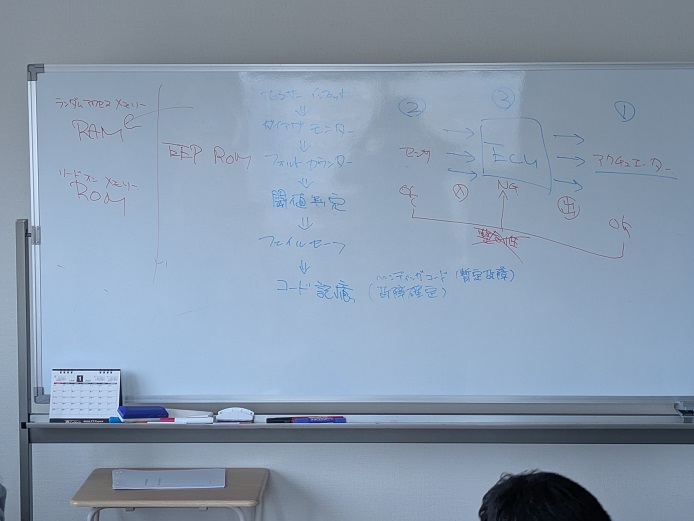 ランダムアクセスメモリー
RAM
リードオンメモリー
ROM
EEP ROM
モニター
フォルトカウンター
閾値判定
フェイルセーフ
コード記憶
ペンディングコード (暫定故障)
(故障確定)
②
③
①
センサ
ECU
アクチュエーター
入
出
OK
NG
OK
整合性